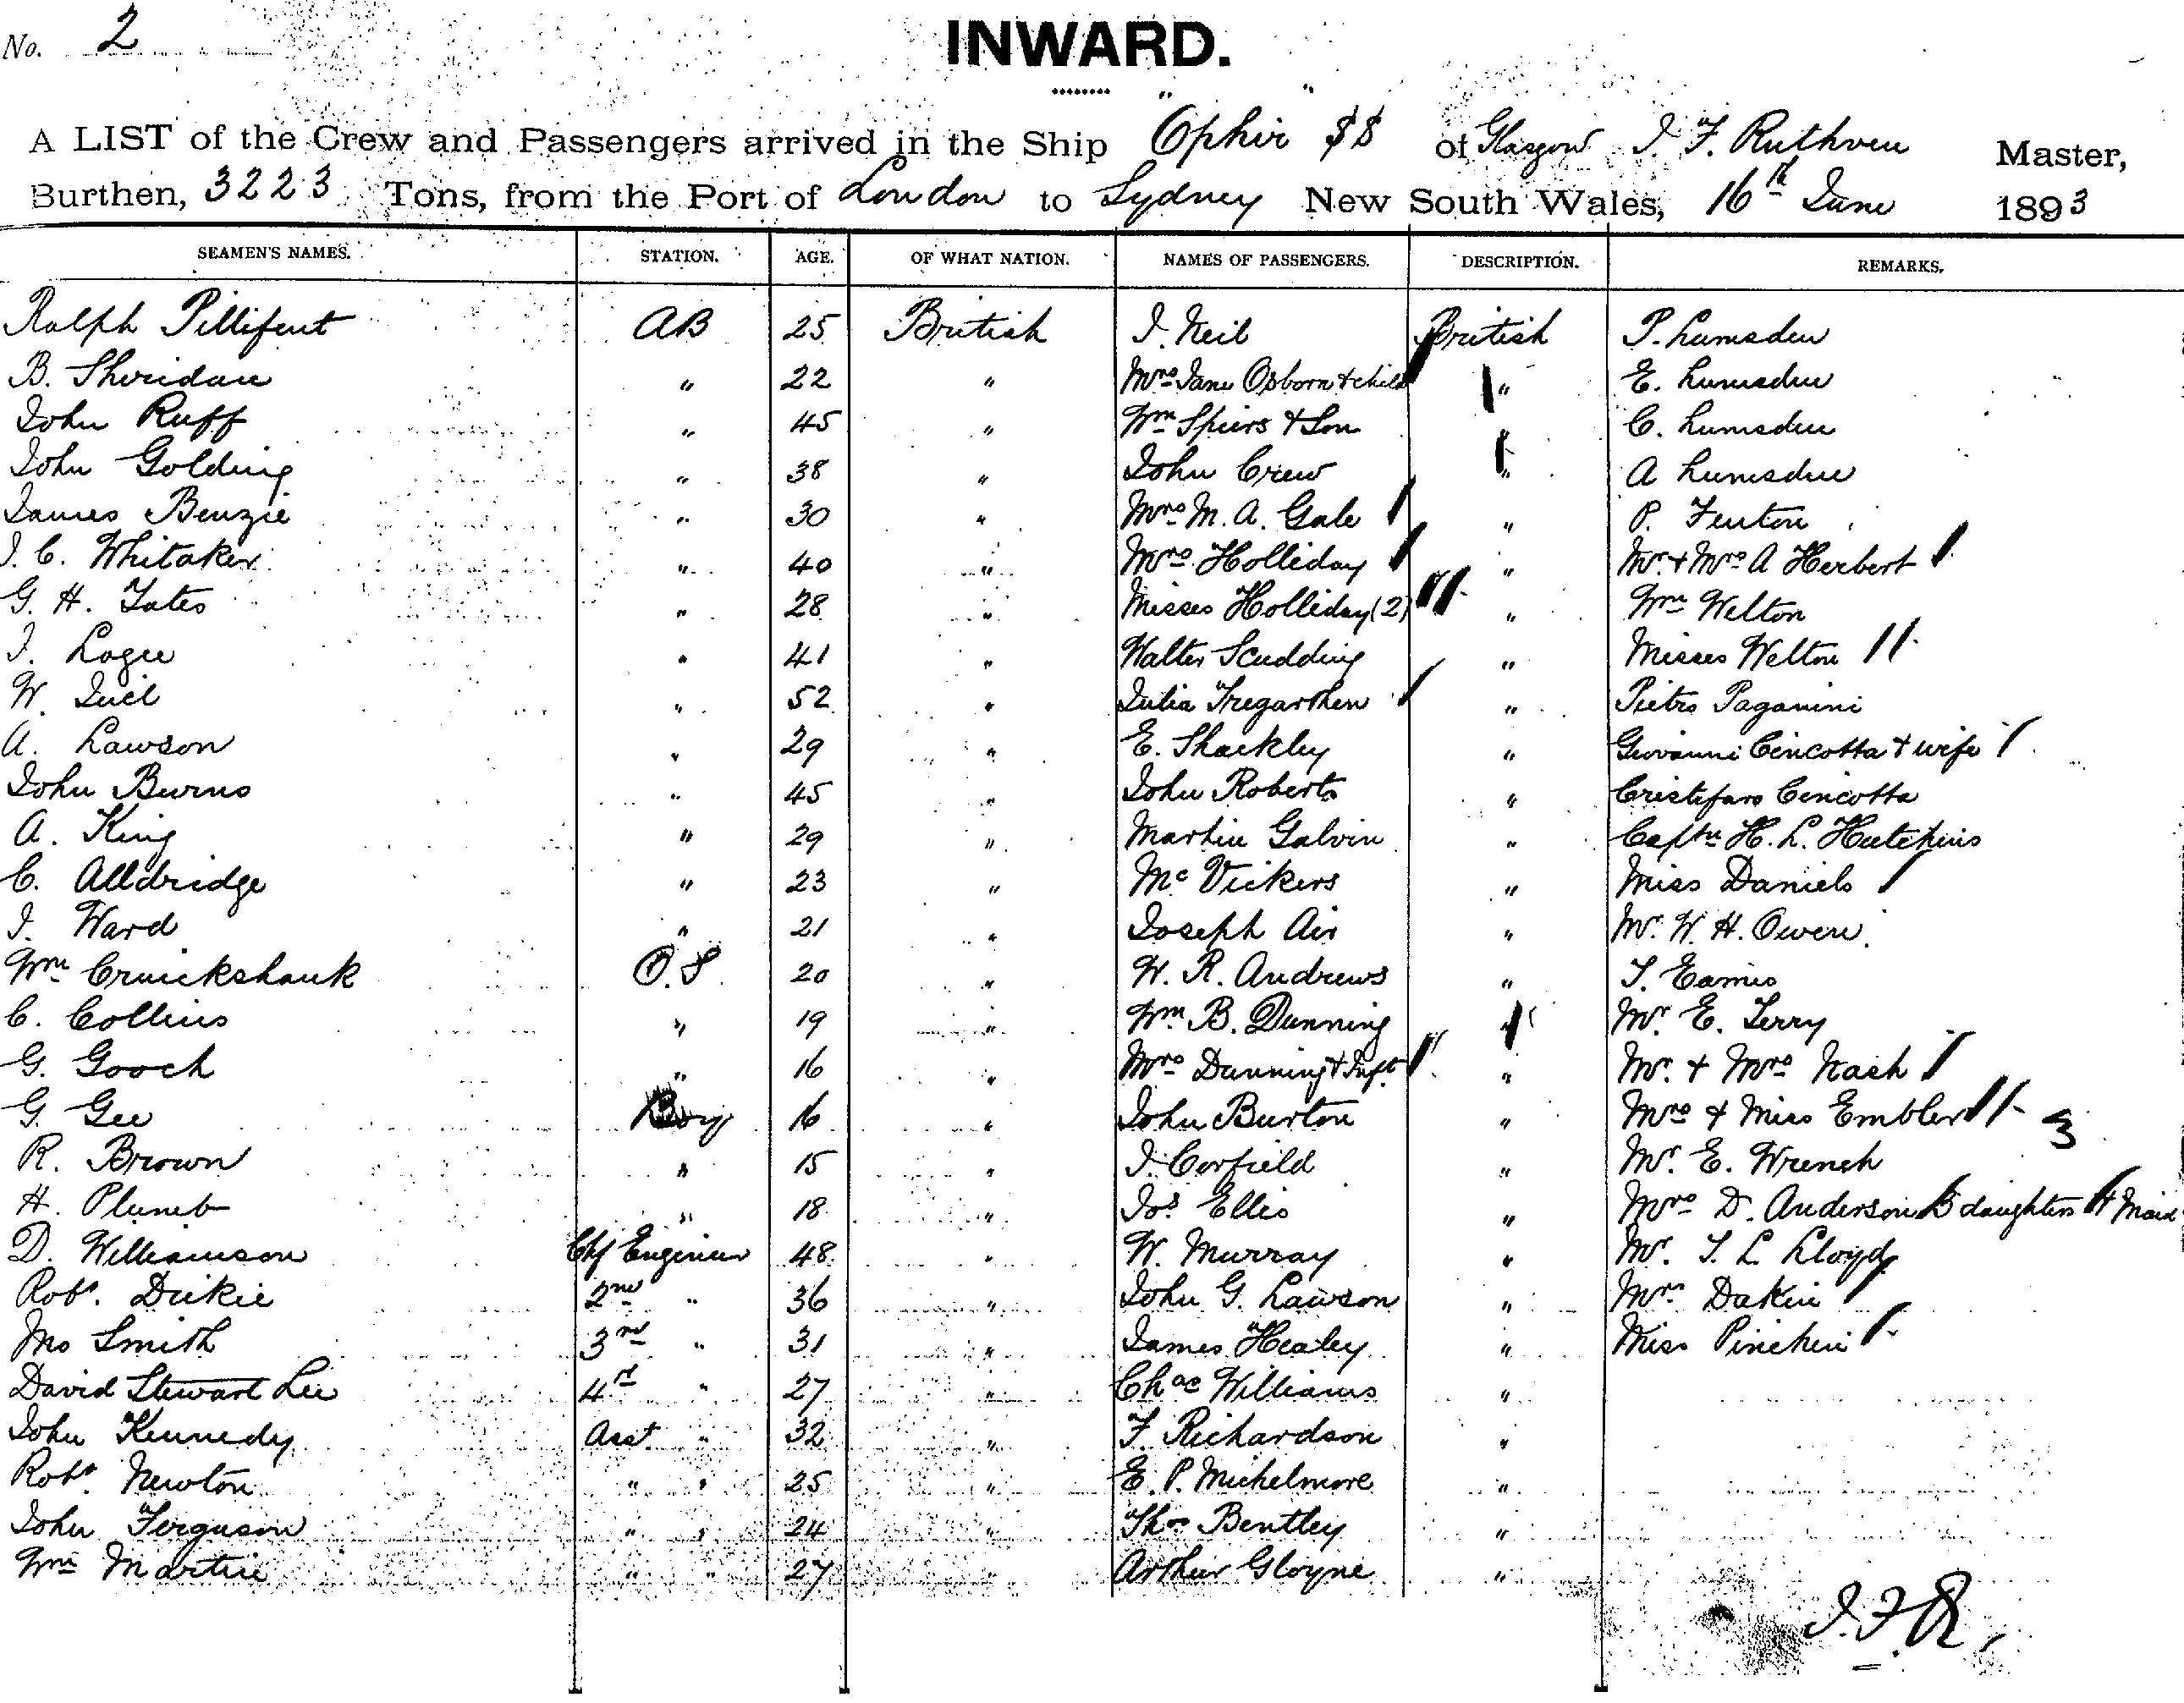 No. 2
INWARD.
A LIST of the Crew and Passengers arrived in the Ship "Ophir" SS of Glasgow J. F. Ruthven Master,
Burthen, 3223 Tons, from the Port of London to Sydney New South Wales, 16th June 1893
SEAMEN'S NAMES. STATION. AGE. OF WHAT NATION. NAMES OF PASSENGERS. DESCRIPTION. REMARKS.
Ralph Pillifent AB 25 British J. Neil British P. Lumsden
B. Sheridan " 22 " Mrs Jane Osborn & child " E. Lumsden
John Ruff " 45 " Wm Spiers & Son " C. Lumsden
John Golding " 38 " John Crew " A Lumsden
James Benzie " 30 " Mrs M. A. Gale " P. Fenton
J. C. Whitaker " 40 " Mrs Holliday " Mr & Mrs A Herbert
G. H. Yates " 28 " Misses Holliday (2) " Wm Welton
J. Logee " 41 " Walter Scudding " Misses Welton
W. " 52 " Julia Tregarthen " Pietro Paganini
A. Lawson " 29 " E. Shackley " Giovanni Cincotta & wife
John Burns " 45 " John Roberts " Cristofaro Cincotta
A. King " 29 " Martin Galvin " Captn H. L. Hutchins
C. Alldridge " 23 " Mc Vickers " Miss Daniels
J. Ward " 21 " Joseph Air " Mr. W. H. Owen
Wm Cruickshank O.S 20 " W. R. Andrews " Eames
C. Collins " 19 " Wm B. Dunning " Mr. E. Terry
G. Gooch " 16 " Mrs Dunning & Inft " Mr. & Mrs Nash
G. Gee Boy 16 " John Burton " Mrs & Miss Embler 3
R. Brown " 15 " J. Corfield " Mr. E. Wrench
H. Plumb " 18 " Jos Ellis " Mrs D. Anderson 3 daughters & Maid
D. Williamson Chf Engineer 48 " W. Murray " Mr. L. Lloyd
Robt. Dickie 2nd " 36 " John G. Lawson " Mrs Dakin
Jno Smith 3rd " 31 " James Healey " Miss Pinchin
David Stewart Lee 4th " 27 " Chas Williams "
John Kennedy Asst " 32 " F. Richardson "
Robt. Newton " " 25 " E. P. Michelmore "
John Ferguson " " 24 " Thos Bentley "
Wm Martin " " 27 " Arthur Gloyne "
J. F. R.